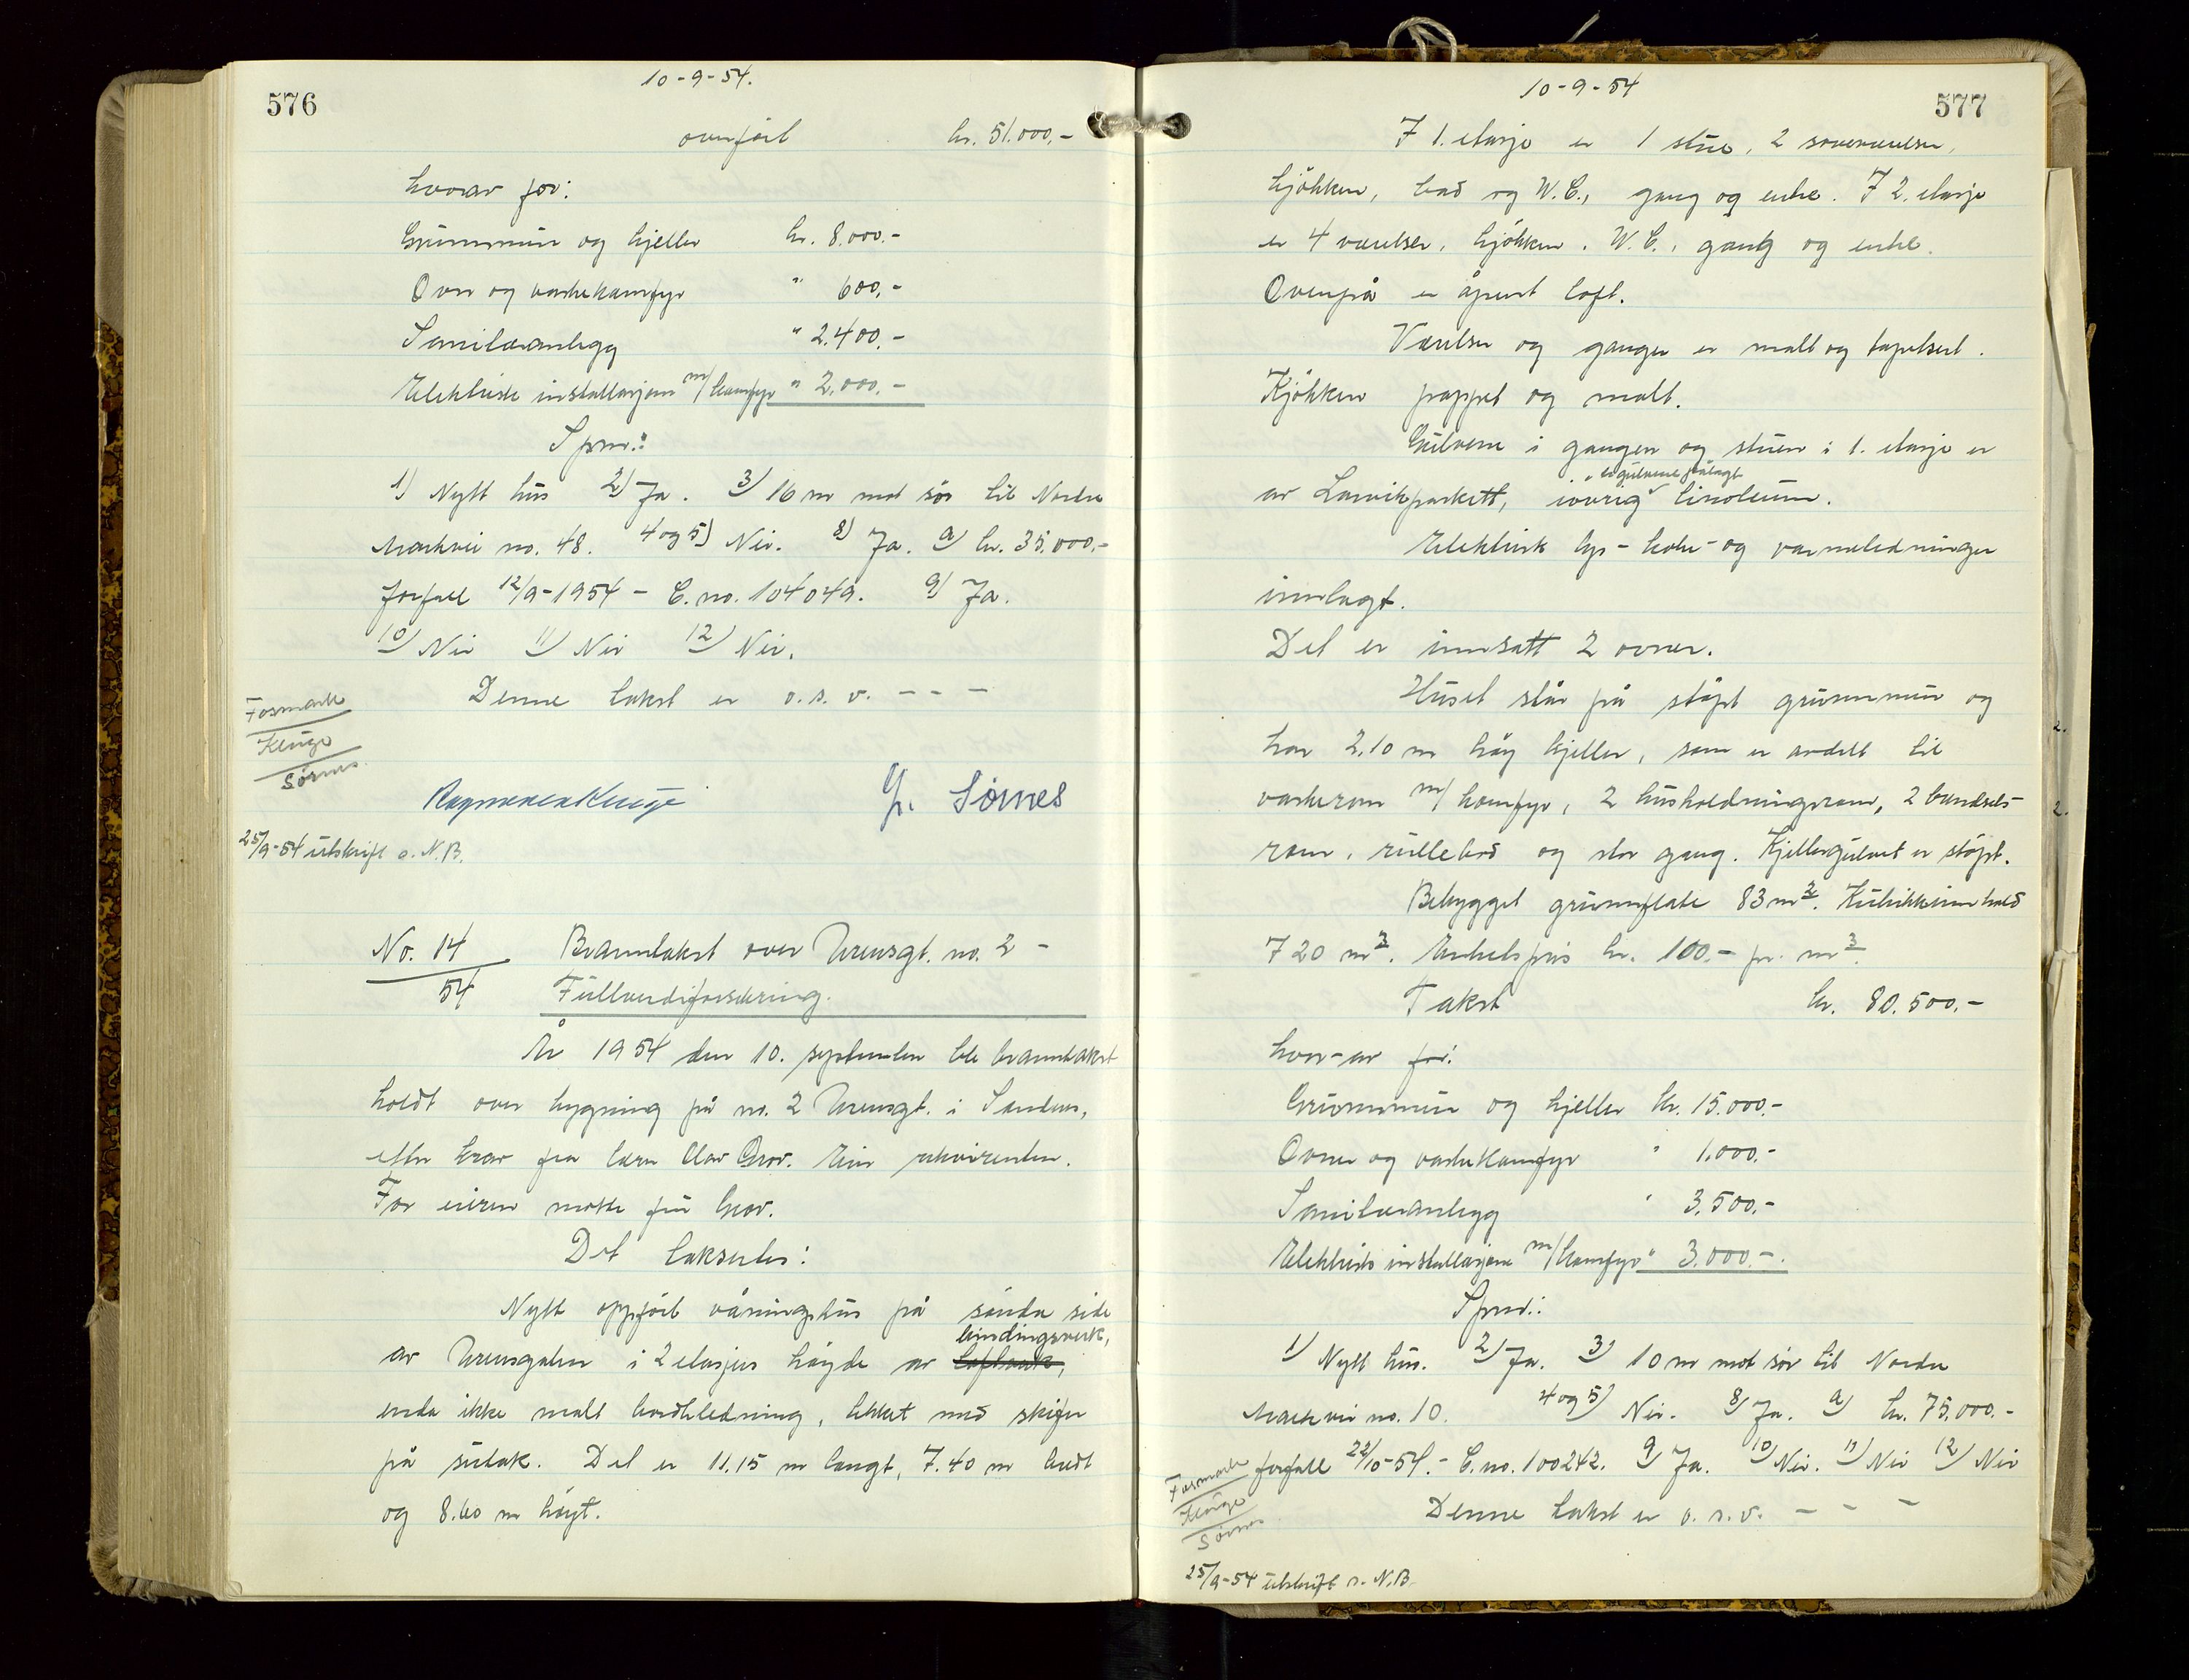 576
10-9-54.
overført kr. 51.000,-
hvorav for:
Grunnmur og kjeller kr. 8.000.-
Ovn og vaskekamfyr " 600,-
Sanitæranlegg " 2.400.-
Elektriske installasjoner m/kamfyr " 2.000.-
Spm.:
1) Nytt hus 2) Ja. 3) 16 m mot sør til Nordre
Markvei no. 48. 4 og 5) Nei. 8) Ja. a) kr. 35.000.-
forfall 12/9-1954 - C.no. 104049. 9) Ja.
10) Nei 11) Nei 12) Nei.
Denne takst er o.s.v. - - -
Fosmark
Kluge
Sörnes
Rasmus Kluge G. Sörnes
25/9-54 utskrift s. N.B.
No. 14
54
Branntakst over Urensgt. no. 2 -
Fullverdiforsikring.
År 1954 den 10. september ble branntakst
holdt over bygning på no. 2 Urensgt. i Sandnes,
etter krav fra Olav Grov. Eier rekvirenten.
For eieren møtte fru Grov.
Det takseres:
Nytt oppført våningshus på søndre side
bindingsverk,
av Urensgaten i 2 etasjers høyde av laftverk,
enda ikke malt bordkledning, tekket med skifer
på sutak. Det er 11.15 m langt, 7.40 m bredt
og 8.60 m høyt.
10-9-54
577
I 1. etasje er 1 stue, 2 soveværelser,
kjøkken, bad og W.C., gang og entre. I 2. etasje
er 4 værelser, kjøkken, W.C., gang og entre.
Ovenpå er åpent loft.
Værelser og ganger er malt og tapetsert.
Kjøkken pappet og malt.
Gulvene i gangen og stuen i 1. etasje er
er gulvene pålagt
av Larvikparkett, iøvrig linoleum.
Elektrisk lys- koke- og varmeledninger
innlagt.
Det er innsatt 2 ovner.
Huset står på støpt grunnmur og
har 2.10 m høy kjeller, som er avdelt til
vaskerom m/ kamfyr, 2 husholdningsrom, 2 brendsels-
rom, rullebod og stor gang. Kjellergulvet er støpt.
Bebygget grunnflate 83 m2. Kubikkinnhold
720 m3. Enhetspris kr. 100.- pr. m3.
Takst kr. 80.500.-
hvor-av for:
Grunnmur og kjeller kr. 15.000.-
Ovner og vaskekamfyr " 1.000.-
Sanitæranlegg " 3.500.-
Elektriske installasjoner m/kamfyr " 3.000.-
Spm.:
1) Nytt hus. 2) Ja. 3) 10 m mot sør til Nordre
Markvei no. 10. 4 og 5) Nei. 8) Ja. a) kr. 75.000.-
forfall 22/10-54. - C.no. 100242. 9) Ja. 10) Nei. 11) Nei 12) Nei
Denne takst er o.s.v. - - -
Fosmark
Kluge
Sörnes
25/9-54 utskrift s. N.B.